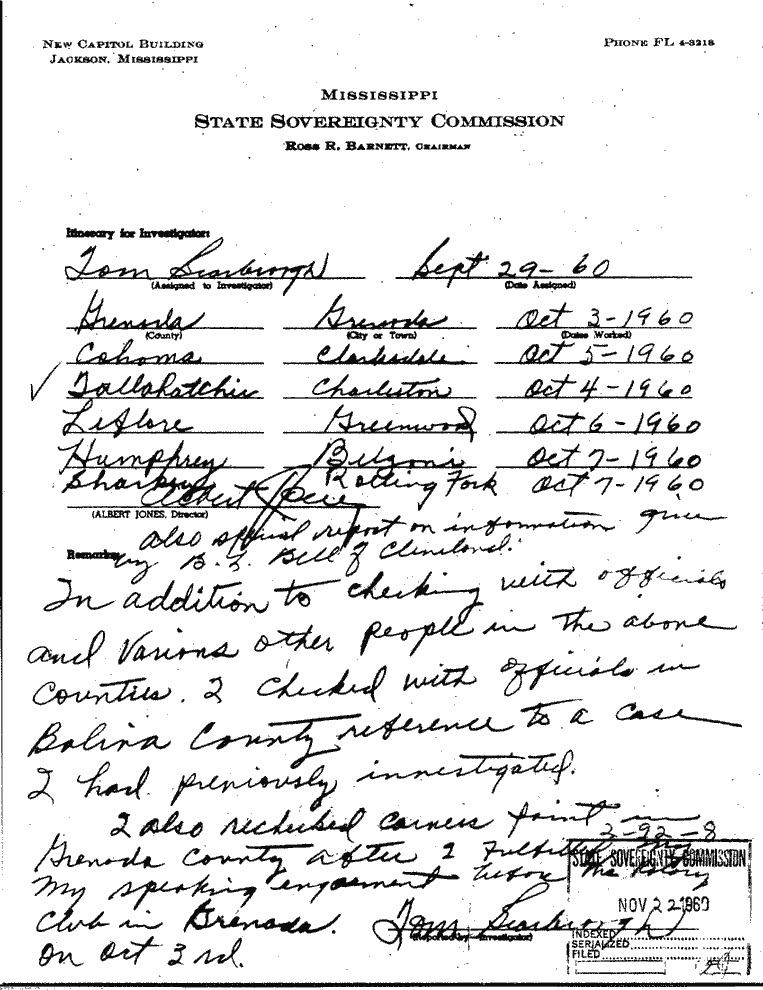 NEW CAPITOL BUILDING
JACKSON, MISSISSIPPI
PHONE FL 4-3218
MISSISSIPPI
STATE SOVEREIGNTY COMMISSION
ROSS R. BARNETT, CHAIRMAN
Itinerary for Investigator:
Tom Scarbrough Sept 29-60
(Assigned to Investigator) (Date Assigned)
Grenada Grenada Oct 3-1960
(County) (City or Town) (Dates Worked)
Cohoma Clarksdale Oct 5-1960
✓ Tallahatchie Charleston Oct 4-1960
Leflore Greenwood Oct 6-1960
Humphrey Belzoni Oct 7-1960
Sharkey Rolling Fork Oct 7-1960
Albert Jones
(ALBERT JONES, Director)
also special report on information given
Remarks by B. L. Bell of Cleveland.
In addition to checking with officials
and Various other people in the above
Counties. I checked with officials in
Boliva County reference to a case
I had previously investigated.
I also rechecked corners point in
2-92-8
Grenada County after I Fulfilled
My speaking engagement before the Rotary
Club in Grenada. Tom Scarbrough
on Oct 3rd.
(Reported by Investigator)
STATE SOVEREIGNTY COMMISSION
NOV 22 1960
INDEXED
SERIALIZED
FILED